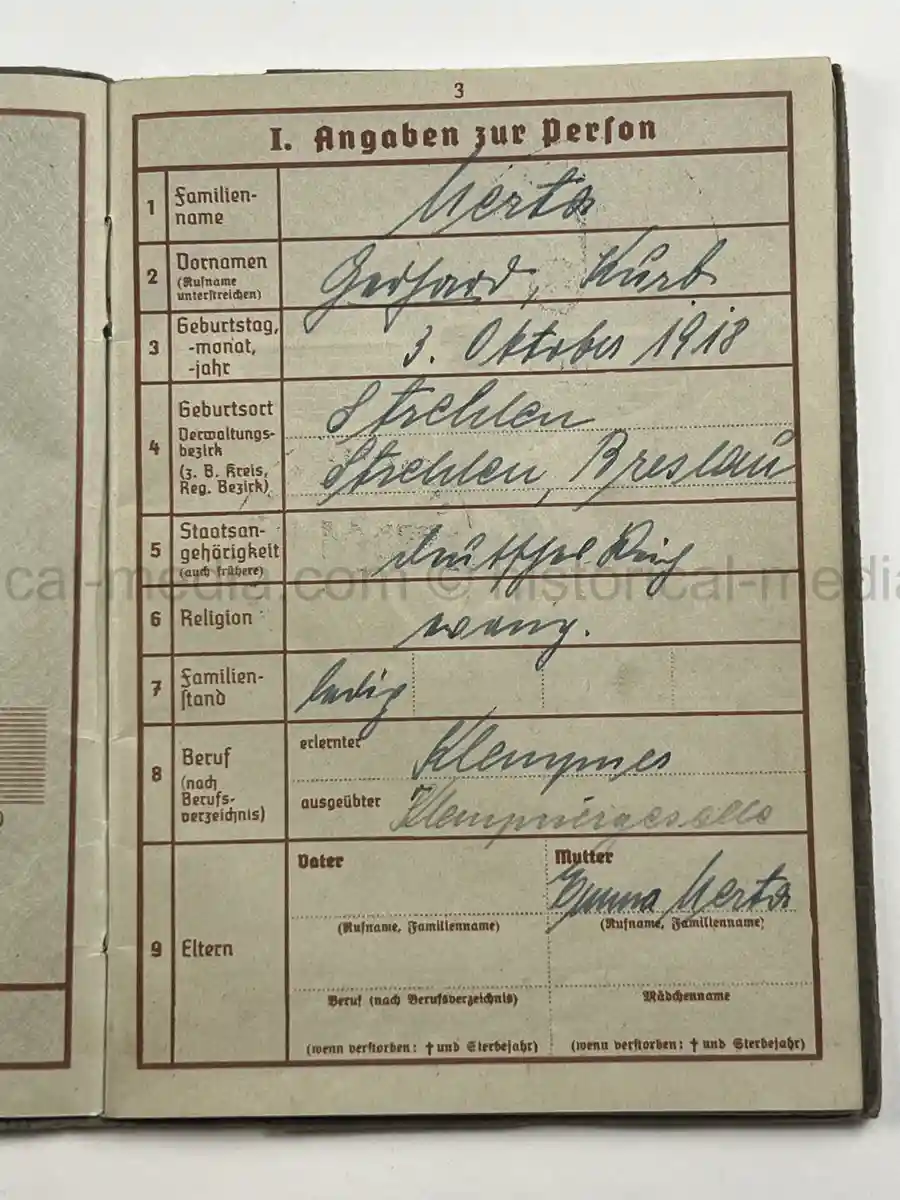 3
I. Angaben zur Person
1 Familien-
name
Mertz
2 Vornamen
(Rufname
unterstreichen)
Gerhard, Kurt
3 Geburtstag,
-monat,
-jahr
3. Oktober 1918
4 Geburtsort
Verwaltungs-
bezirk
(z. B. Kreis,
Reg. Bezirk)
Strehlen
Strehlen, Breslau
5 Staatsan-
gehörigkeit
(auch frühere)
6 Religion
evang.
7 Familien-
stand
ledig
8 Beruf
(nach
Berufs-
verzeichnis)
erlernter
Klempner
ausgeübter
Klempnergeselle
9 Eltern
Vater
(Rufname, Familienname)
Beruf (nach Berufsverzeichnis)
(wenn verstorben: † und Sterbejahr)
Mutter
Emma Mertz
(Rufname, Familienname)
Mädchenname
(wenn verstorben: † und Sterbejahr)
cal-media.com © historical-media